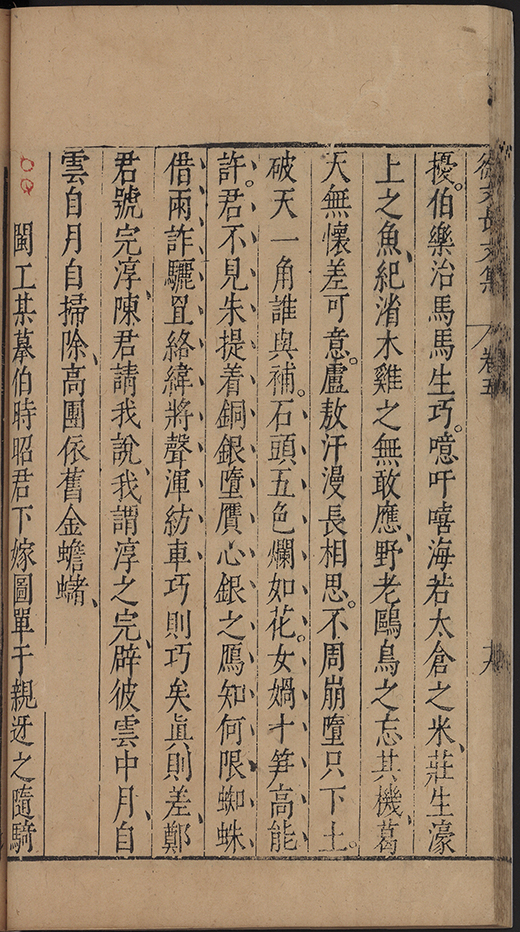 徐文長文集 卷五 十六
擾。伯樂治馬馬生巧。噫吁嘻海若太倉之米、莊生濠
上之魚、紀渻木雞之無敢應、野老鷗鳥之忘其機、葛
天無懷差可意。盧敖汗漫長相思。不周崩墮只下土。
破天一角誰與補。石頭五色爛如花。女媧十笋高能
許。君不見朱提着銅銀墮贋心銀之鴈知何限蜘蛛
借兩詐驪罝絡緯將聲渾紡車巧則巧矣真則差、鄭
君號完淳、陳君請我說、我謂淳之完、辟彼雲中月、自
雲自月自掃除、高團依舊金蟾蠩、
閩工某摹伯時昭君下嫁圖單于親迓之隨騎